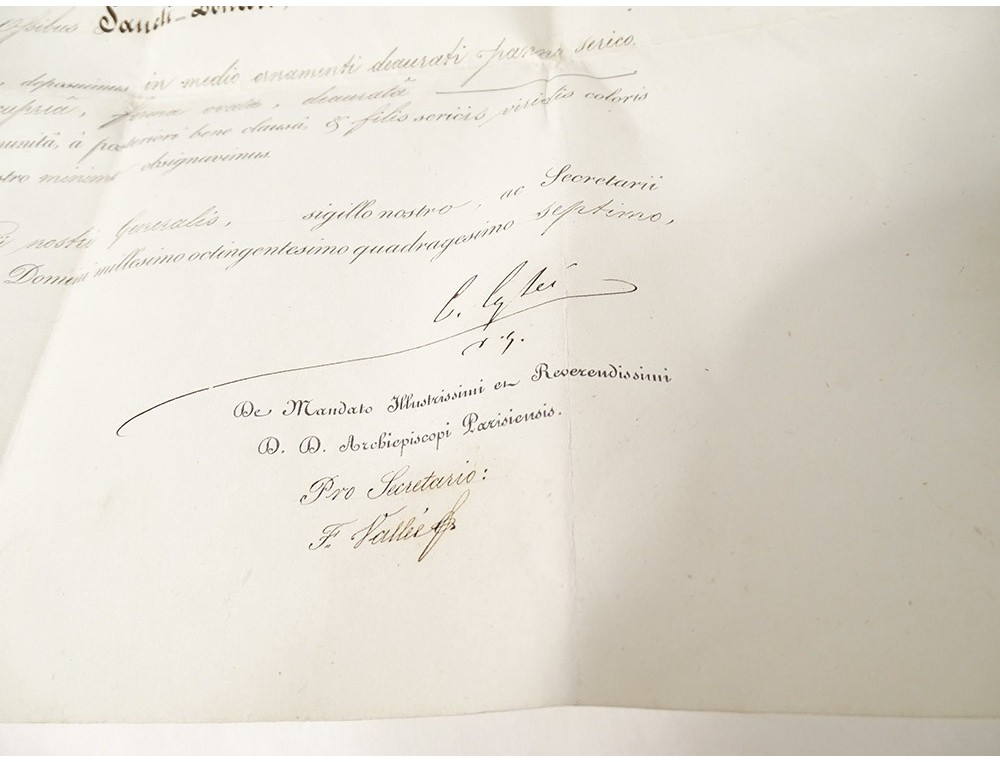 Sancti-
deposuimus in medio ornamenti deaurati panno serico.
cupriâ, forma ovata, deauratâ
munitâ, à posteriori bene clausâ, & filis sericis viridis coloris
nostro minimo obsignavimus.
nostri Generalis, sigillo nostro, ac Secretarii
Domini millesimo octingentesimo quadragesimo septimo,
De Mandato Illustrissimi et Reverendissimi
D. D. Archiepiscopi Parisiensis.
Pro Secretario:
F. Vallée